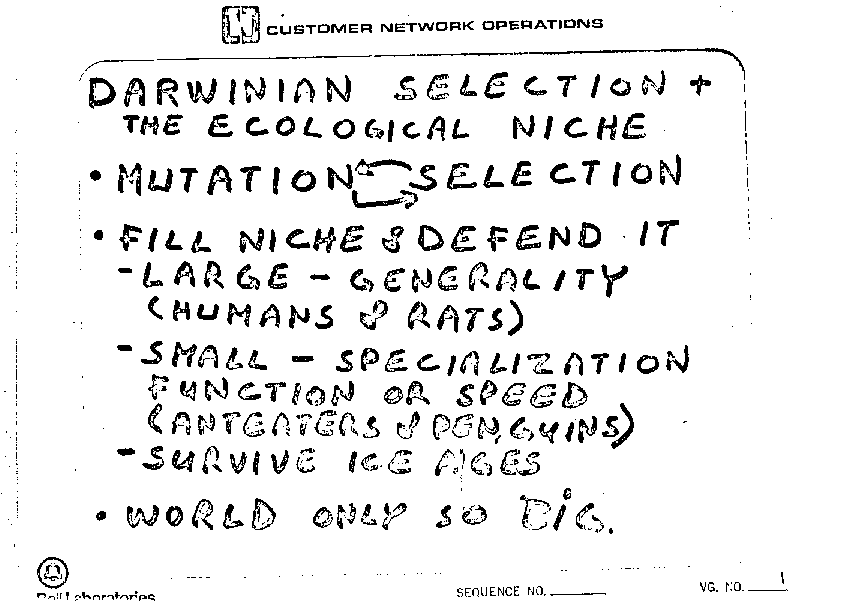 CUSTOMER NETWORK OPERATIONS
DARWINIAN SELECTION +
THE ECOLOGICAL NICHE
• MUTATION SELECTION
• FILL NICHE & DEFEND IT
- LARGE - GENERALITY
(HUMANS & RATS)
- SMALL - SPECIALIZATION
FUNCTION OR SPEED
(ANTEATERS & PENGUINS)
- SURVIVE ICE AGES
• WORLD ONLY SO BIG.
Bell Laboratories
SEQUENCE NO.
VG. NO. 1